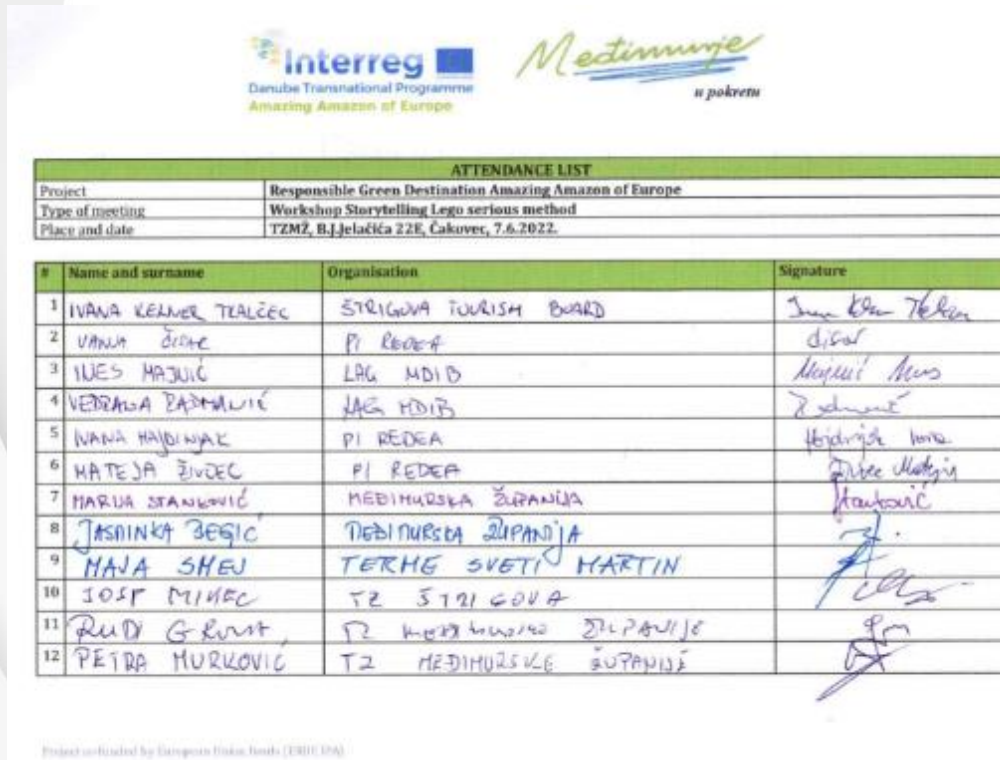 Interreg
Danube Transnational Programme
Amazing Amazon of Europe
Međimurje
u pokretu
ATTENDANCE LIST
Project Responsible Green Destination Amazing Amazon of Europe
Type of meeting Workshop Storytelling Lego serious method
Place and date TZMŽ, B.J.Jelačića 22E, Čakovec, 7.6.2022.
# Name and surname Organisation Signature
1 IVANA KELNER TKALČEC ŠTRIGOVA TOURISM BOARD
2 VANJA PI REDEA
3 INES MAJNIĆ LAG MDIB Majnić Ines
4 VEDRANA RADMANIĆ LAG MDIB
5 IVANA HAJDINJAK PI REDEA Hajdinjak Ivana
6 MATEJA ŽIVDEC PI REDEA
7 MARIJA STANKOVIĆ MEĐIMURSKA ŽUPANIJA Stanković
8 JASMINKA BEGIĆ MEĐIMURSKA ŽUPANIJA
9 MAJA SMEJ TERME SVETI MARTIN
10 JOSIP MIKEC TZ ŠTRIGOVA
11 RUDI TZ ŽUPANIJE
12 PETRA MURKOVIĆ TZ MEĐIMURSKE ŽUPANIJE
Project co-funded by European Union funds (ERDF, IPA)